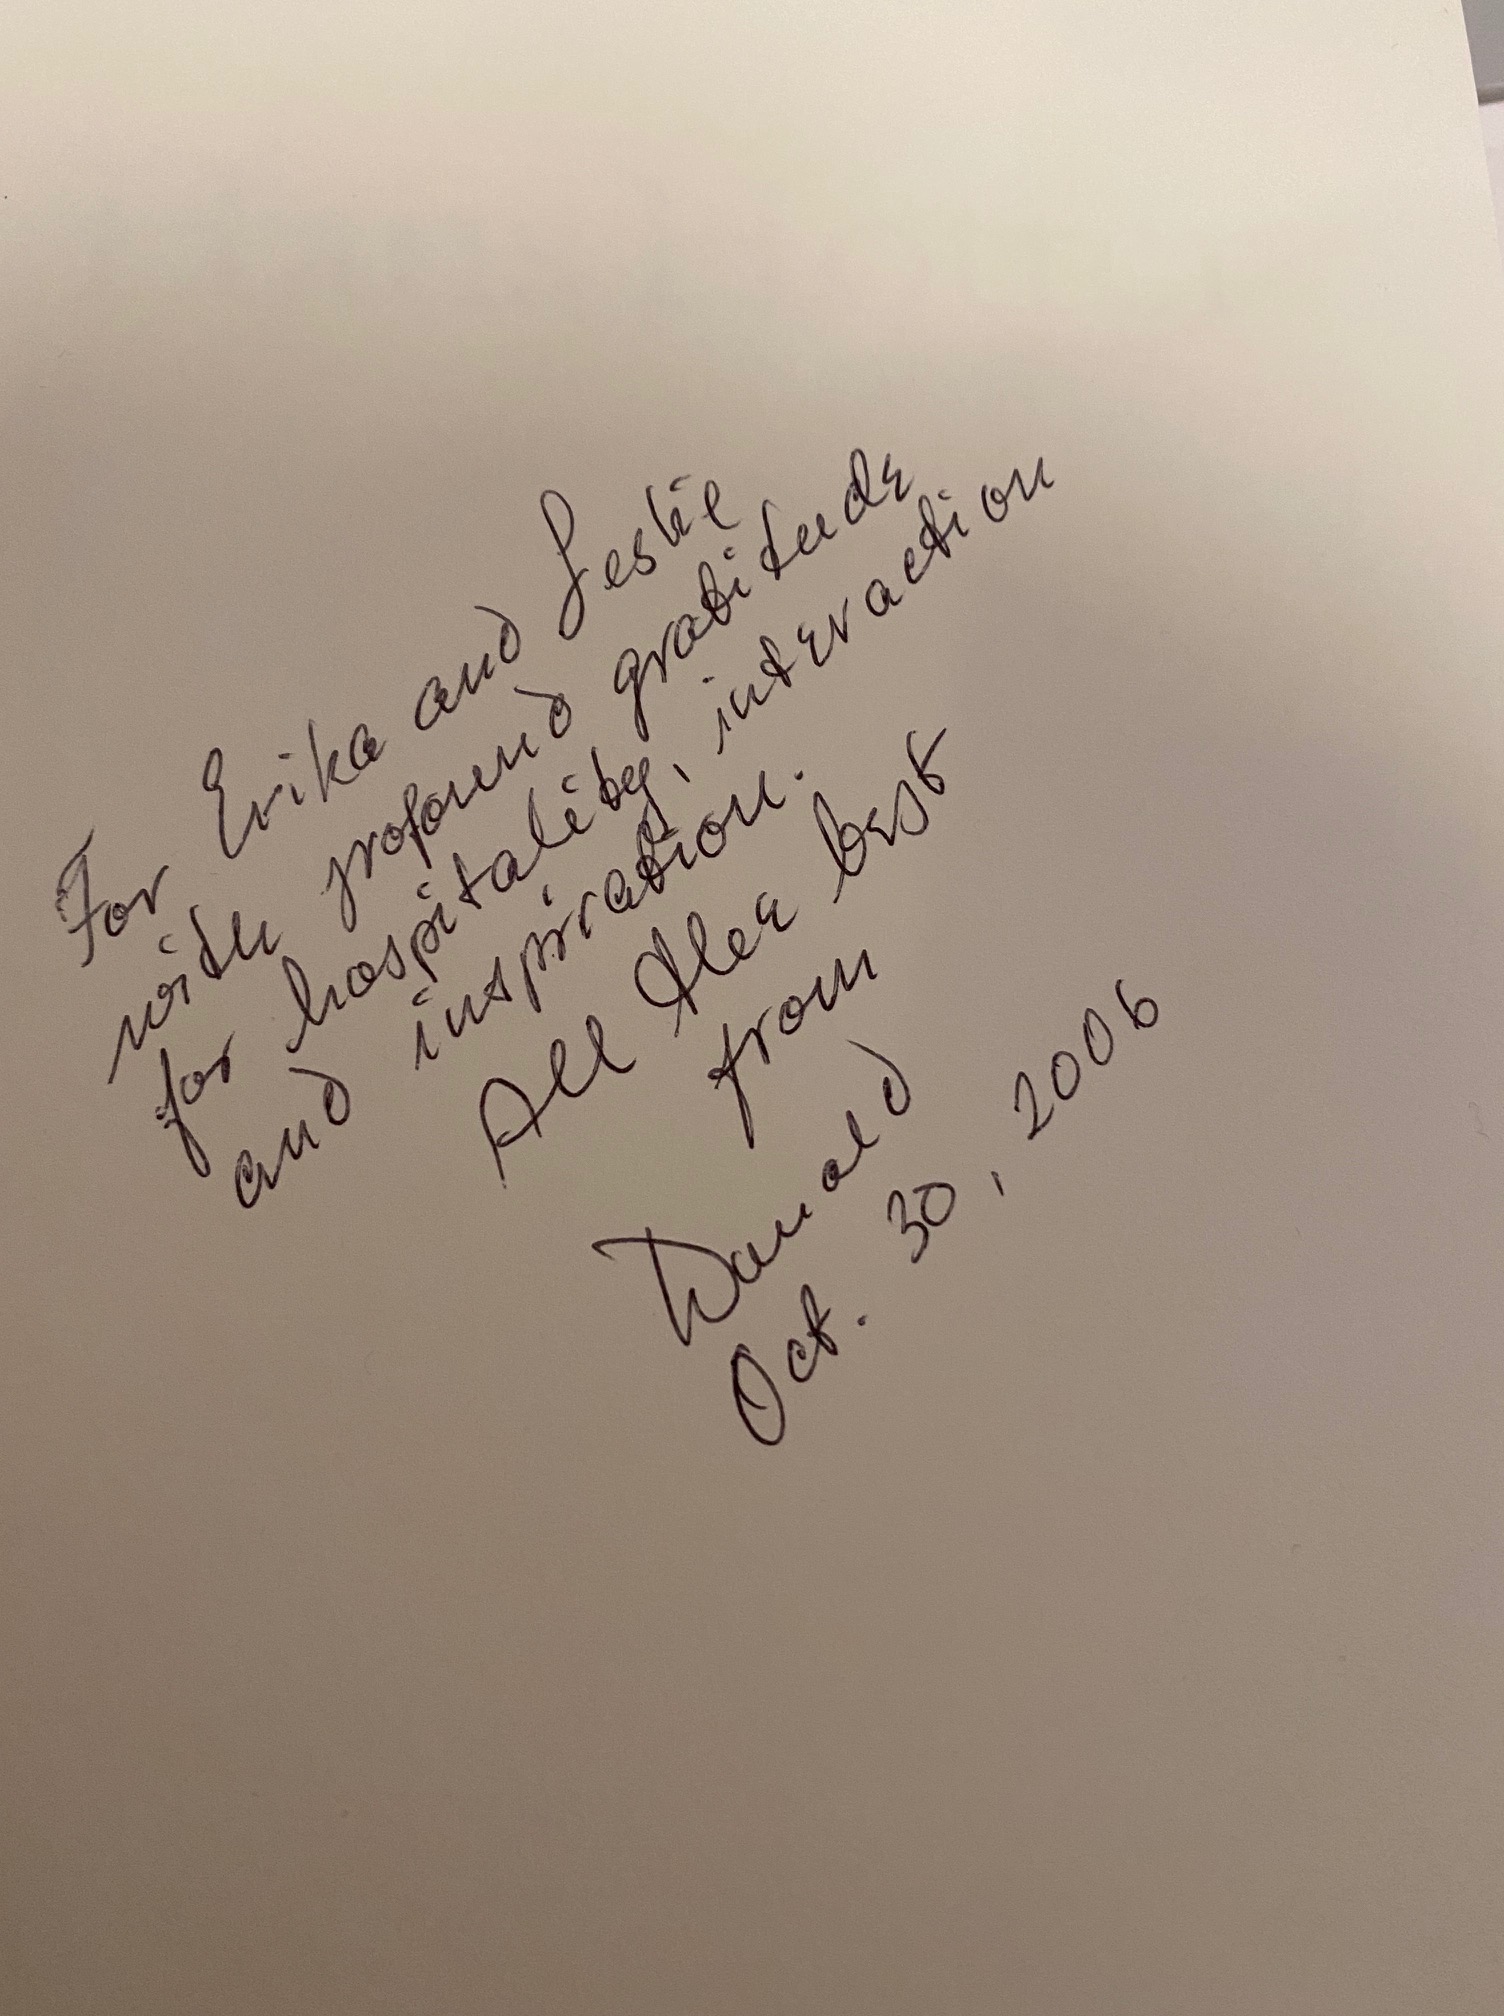 For Erika and Leslie
with profound gratitude
for hospitality, interaction
and inspiration.
All the best
from
Donald
Oct. 30, 2006